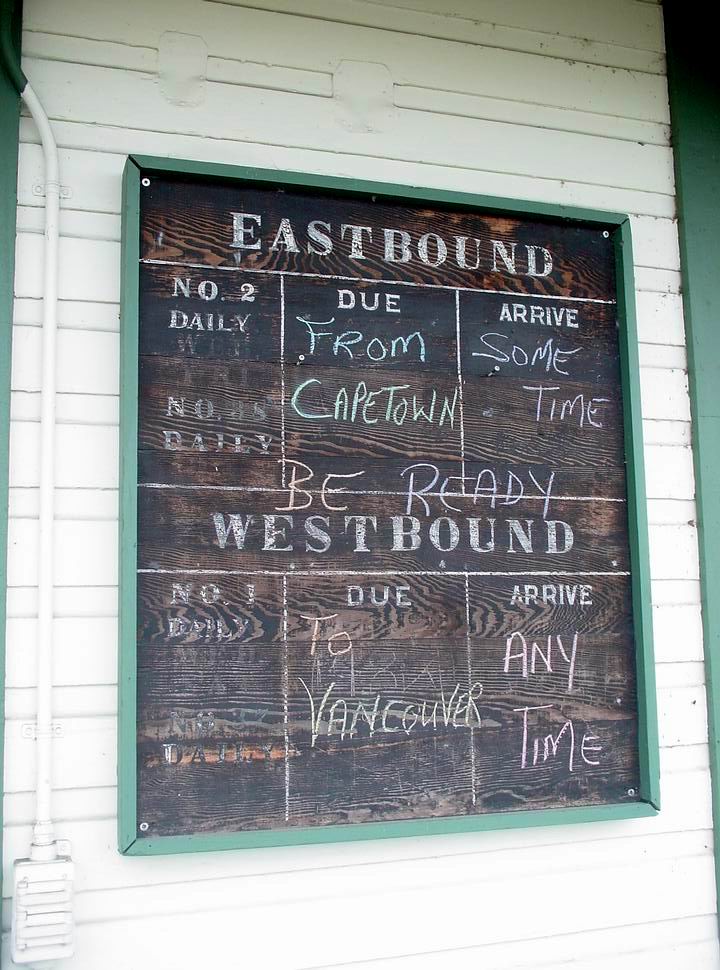 EASTBOUND
NO. 2 DUE ARRIVE
DAILY FROM SOME
CAPETOWN TIME
NO.
DAILY
BE READY
WESTBOUND
NO. 1 DUE ARRIVE
DAILY TO ANY
VANCOUVER TIME
NO.
DAILY